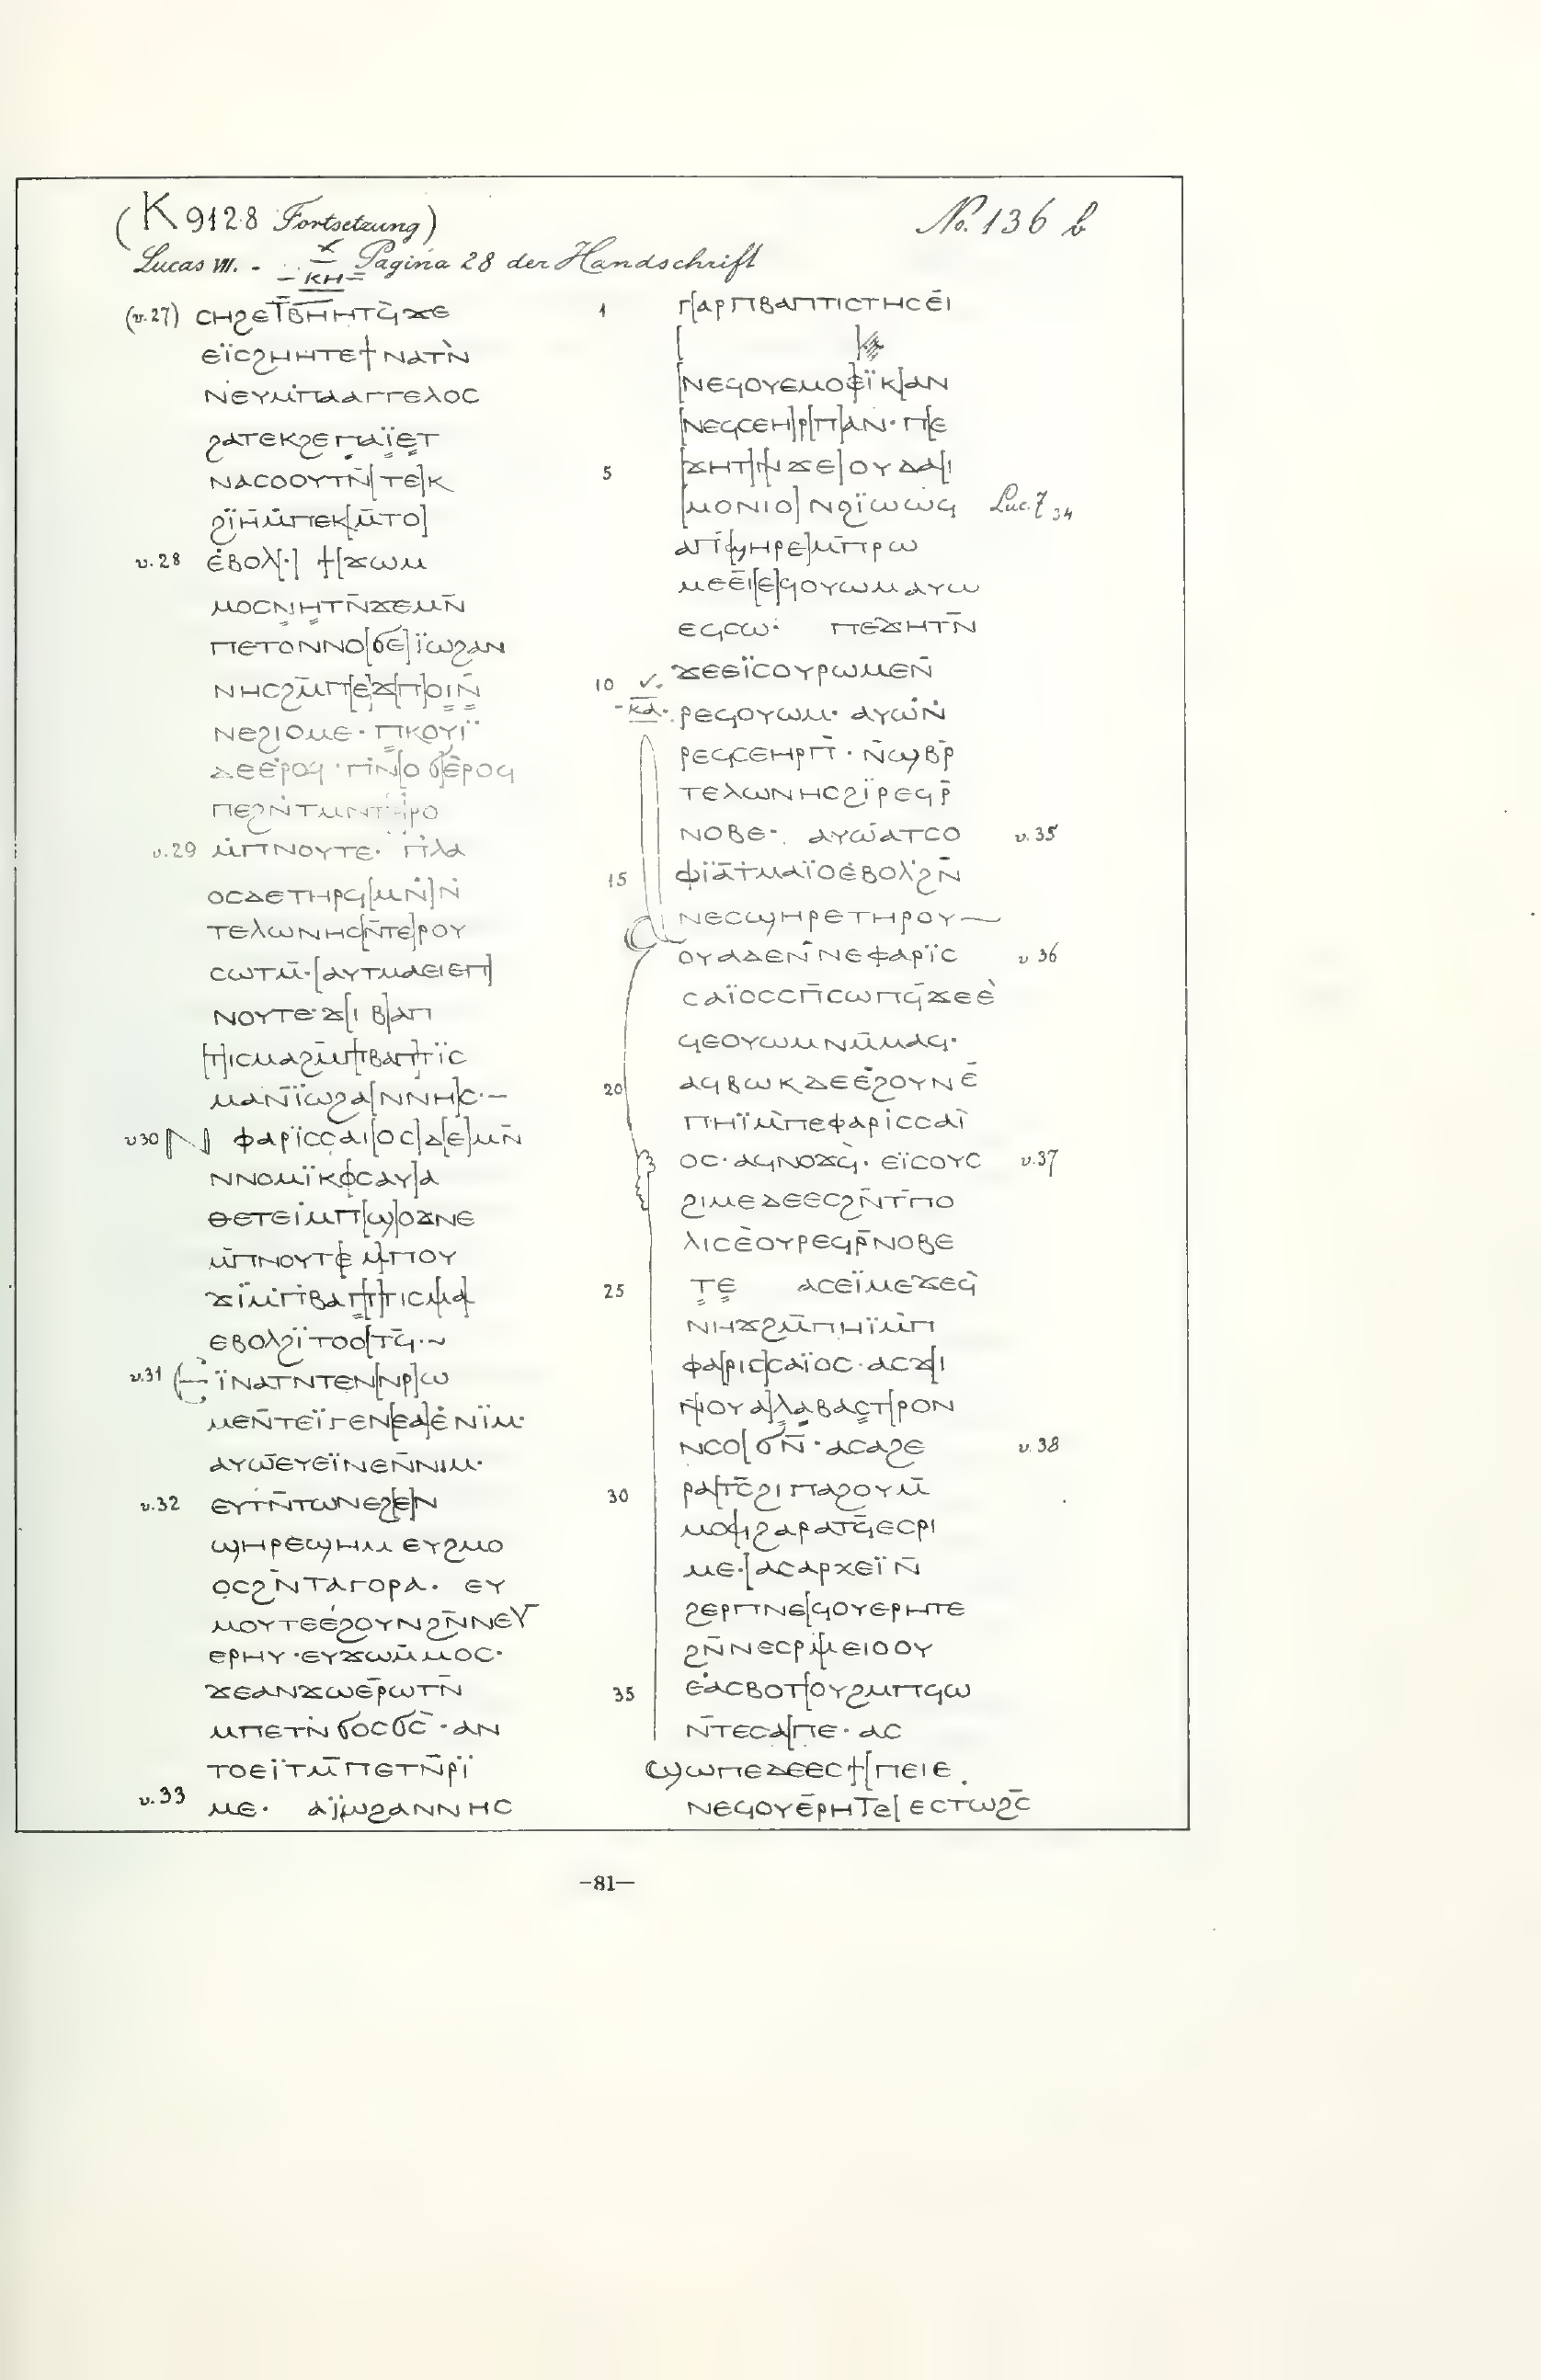 (K 9128 Fortsetzung)
No. 136 b
Lucas VII. - ⲕⲏ Pagina 28 der Handschrift
(v.27) ⲥⲏϩⲉⲧ̄ⲃⲏⲏⲧϥ̀ϫⲉ
ⲉⲓ̈ⲥϩⲏⲏⲧⲉϯⲛⲁⲧⲛ̀
ⲛⲉⲩⲙ̇ⲡⲁⲁⲅⲅⲉⲗⲟⲥ
ϩⲁⲧⲉⲕϩⲉⲡⲁⲓ̈ⲉⲧ
ⲛⲁⲥⲟⲟⲩⲧⲛ̄[ⲧⲉ]ⲕ
ϩⲓ̈ⲏⲙ̇ⲡⲉⲕ[ⲙ̄ⲧⲟ]
v.28 ⲉ̇ⲃⲟⲗ[·] ϯ[ϫⲱⲙ
ⲙⲟⲥⲛⲏⲧⲛ̄ϫⲉⲙⲛ̄
ⲡⲉⲧⲟⲛⲛⲟ[ϭⲉ]ⲓ̈ⲱϩⲁⲛ
ⲛⲏⲥϩⲙ̄ⲡ[ⲉ]ϫ[ⲡ]ⲟⲓⲛ̄
ⲛⲉϩⲓⲟⲙⲉ· ⲡⲕⲟⲩⲓ̈
ⲇⲉⲉ̇ⲣⲟϥ·ⲡⲛ[ⲟϭ]ⲉ̄ⲣⲟϥ
ⲡⲉϩⲛ̇ⲧⲙⲛⲧⲣ̄ⲣⲟ
v.29 ⲙ̇ⲡⲛⲟⲩⲧⲉ· ⲡ̇ⲗⲁ
ⲟⲥⲇⲉⲧⲏⲣϥ[ⲙⲛ̇]ⲛ̇
ⲧⲉⲗⲱⲛⲏⲥ[ⲛ̄ⲧⲉ]ⲣⲟⲩ
ⲥⲱⲧⲙ̄·[ⲁⲩⲧⲙⲁⲉⲓⲉⲡ]
ⲛⲟⲩⲧⲉ·ϫ[ⲓ ⲃ]ⲁⲡ
[ⲧ]ⲓⲥⲙⲁϩⲙ̄ⲡⲃⲁⲡⲧⲓ̈ⲥ
ⲙⲁⲛ̄ⲓ̈ⲱϩⲁ[ⲛⲛⲏ]ⲥ·–
v30 [ⲛ] ⲫⲁⲣⲓ̈ⲥⲥⲁⲓ[ⲟⲥ]ⲇ[ⲉ]ⲙⲛ̄
ⲛⲛⲟⲙⲓ̈ⲕⲟⲥⲁⲩⲁ
ⲑⲉⲧⲉⲓⲙ̇ⲡ[ϣ]ⲟϫⲛⲉ
ⲙ̇ⲡⲛⲟⲩⲧⲉ ⲙ̇ⲡⲟⲩ
ϫⲓ̈ⲙ̇ⲡⲃⲁⲡⲧⲓⲥⲙⲁ
ⲉⲃⲟⲗϩⲓ̈ⲧⲟⲟ[ⲧϥ̄·~
v.31 ⲉⲓ̈ⲛⲁⲧⲛⲧⲉⲛ[ⲛⲣ]ⲱ
ⲙⲉⲛ̄ⲧⲉⲓ̈ⲅⲉⲛ[ⲉⲁ]ⲉ̇ⲛⲓ̈ⲙ·
ⲁⲩⲱ̄ⲉⲩⲉⲓ̈ⲛⲉⲛ̄ⲛⲓⲙ·
v.32 ⲉⲩⲧⲛ̄ⲧⲱⲛⲉϩ[ⲉ]ⲛ
ϣⲏⲣⲉ̇ϣⲏⲙ ⲉⲩϩⲙⲟ
ⲟⲥϩⲛ̀ⲧⲁⲅⲟⲣⲁ· ⲉⲩ
ⲙⲟⲩⲧⲉⲉ̇ϩⲟⲩⲛϩⲛ̄ⲛⲉⲩ
ⲉⲣⲏⲩ·ⲉⲩϫⲱⲙ̄ⲙⲟⲥ·
ϫⲉⲁⲛϫⲱⲉ̄ⲣⲱⲧⲛ̄
ⲙⲡⲉⲧⲛ̇ϭⲟⲥϭⲥ̀·ⲁⲛ
ⲧⲟⲉⲓ̈ⲧⲙ̄ⲡⲉⲧⲛ̄ⲣⲓ̈
v.33 ⲙⲉ· ⲁϥⲓⲱϩⲁⲛⲛⲏⲥ
1 ⲅ[ⲁⲣⲡⲃⲁⲡⲧⲓⲥⲧⲏⲥⲉ̄ⲓ
[ ]
[ⲛⲉϥⲟⲩⲉⲙⲟⲉⲓ̈ⲕ]ⲁⲛ
[ⲛⲉϥⲥⲉⲏ]ⲣ[ⲡ]ⲁⲛ·ⲡ[ⲉ
5 [ϫⲏⲧ]ⲛ̄[ϫⲉ]ⲟⲩⲇⲁⲓ
[ⲙⲟⲛⲓⲟ]ⲛϩⲓ̈ⲱⲱϥ Luc. 7 34
ⲁⲡ̄[ϣⲏⲣⲉ]ⲙ̄ⲡⲣⲱ
ⲙⲉⲉ̄ⲓ[ⲉ]ϥⲟⲩⲱⲙⲁⲩⲱ
ⲉϥⲥⲱ· ⲡⲉϫⲏⲧⲛ̄
10 ϫⲉⲉⲓ̈ⲥⲟⲩⲣⲱⲙⲉⲛ̄
ⲕⲁ· ⲣⲉϥⲟⲩⲱⲙ· ⲁⲩⲱⲛ̇
ⲣⲉϥⲥⲉⲏⲣⲡ̄·ⲛ̄ϣⲃⲣ̄
ⲧⲉⲗⲱⲛⲏⲥϩⲓ̈ⲣⲉϥⲣ̄
ⲛⲟⲃⲉ· ⲁⲩⲱ̈ⲁⲧⲥⲟ v.35
15 ⲫⲓ̈ⲁ̄ⲧⲙⲁⲓ̈ⲟⲉ̇ⲃⲟⲗϩⲛ̄
ⲛⲉⲥϣⲏⲣⲉⲧⲏⲣⲟⲩ—
ⲟⲩⲁⲇⲉⲛ̄ⲛⲉⲫⲁⲣⲓ̈ⲥ v 36
ⲥⲁⲓ̈ⲟⲥⲥⲡ̄ⲥⲱⲡϥ̄ϫⲉⲉ̀
ϥⲉⲟⲩⲱⲙⲛⲙ̄ⲙⲁϥ·
20 ⲁϥⲃⲱⲕⲇⲉⲉ̇ϩⲟⲩⲛⲉ̄
ⲡⲏⲓ̈ⲙ̇ⲡⲉⲫⲁⲣⲓⲥⲥⲁⲓ̈
ⲟⲥ·ⲁϥⲛⲟϫϥ̀· ⲉⲓ̈ⲥⲟⲩⲥ v.37
ϩⲓⲙⲉⲇⲉⲉⲥϩⲛ̄ⲧ̄ⲡⲟ
ⲗⲓⲥⲉ̀ⲟⲩⲣⲉϥⲣ̄ⲛⲟⲃⲉ
25 ⲧⲉ ⲁⲥⲉⲓ̈ⲙⲉϫⲉϥ̀
ⲛⲏϫϩⲙ̄ⲡⲏⲓ̈ⲙ̇ⲡ
ⲫⲁ[ⲣⲓⲥ]ⲥⲁⲓ̈ⲟⲥ·ⲁⲥϫ[ⲓ
ⲛ̄ⲟⲩⲁ]ⲗⲁⲃⲁⲥⲧ[ⲣⲟⲛ
ⲛⲥⲟ[ϭⲛ̄·ⲁⲥⲁϩⲉ v.38
30 ⲣⲁ[ⲧⲥ̄ϩⲓⲡⲁϩⲟⲩⲙ̄
ⲙⲟϥ[ϩⲁⲣⲁⲧϥ̄ⲉⲥⲣⲓ
ⲙⲉ·[ⲁⲥⲁⲣⲭⲉⲓ̈ⲛ̄
ϩⲉⲣⲡⲛⲉ[ϥⲟⲩⲉⲣⲏⲧⲉ
ϩⲛ̄ⲛⲉⲥⲣⲙⲉⲓⲟⲟⲩ
35 ⲉⲁ̇ⲥⲃⲟⲧ[ⲟⲩϩⲙⲡϥⲱ
ⲛ̄ⲧⲉⲥⲁ[ⲡⲉ· ⲁⲥ
ϣⲱⲡⲉⲇⲉⲉⲥϯ[ⲡⲉⲓⲉ
ⲛⲉϥⲟⲩⲉ̄ⲣⲏⲧⲉ[ ⲉⲥⲧⲱϩⲥ̄
–81—